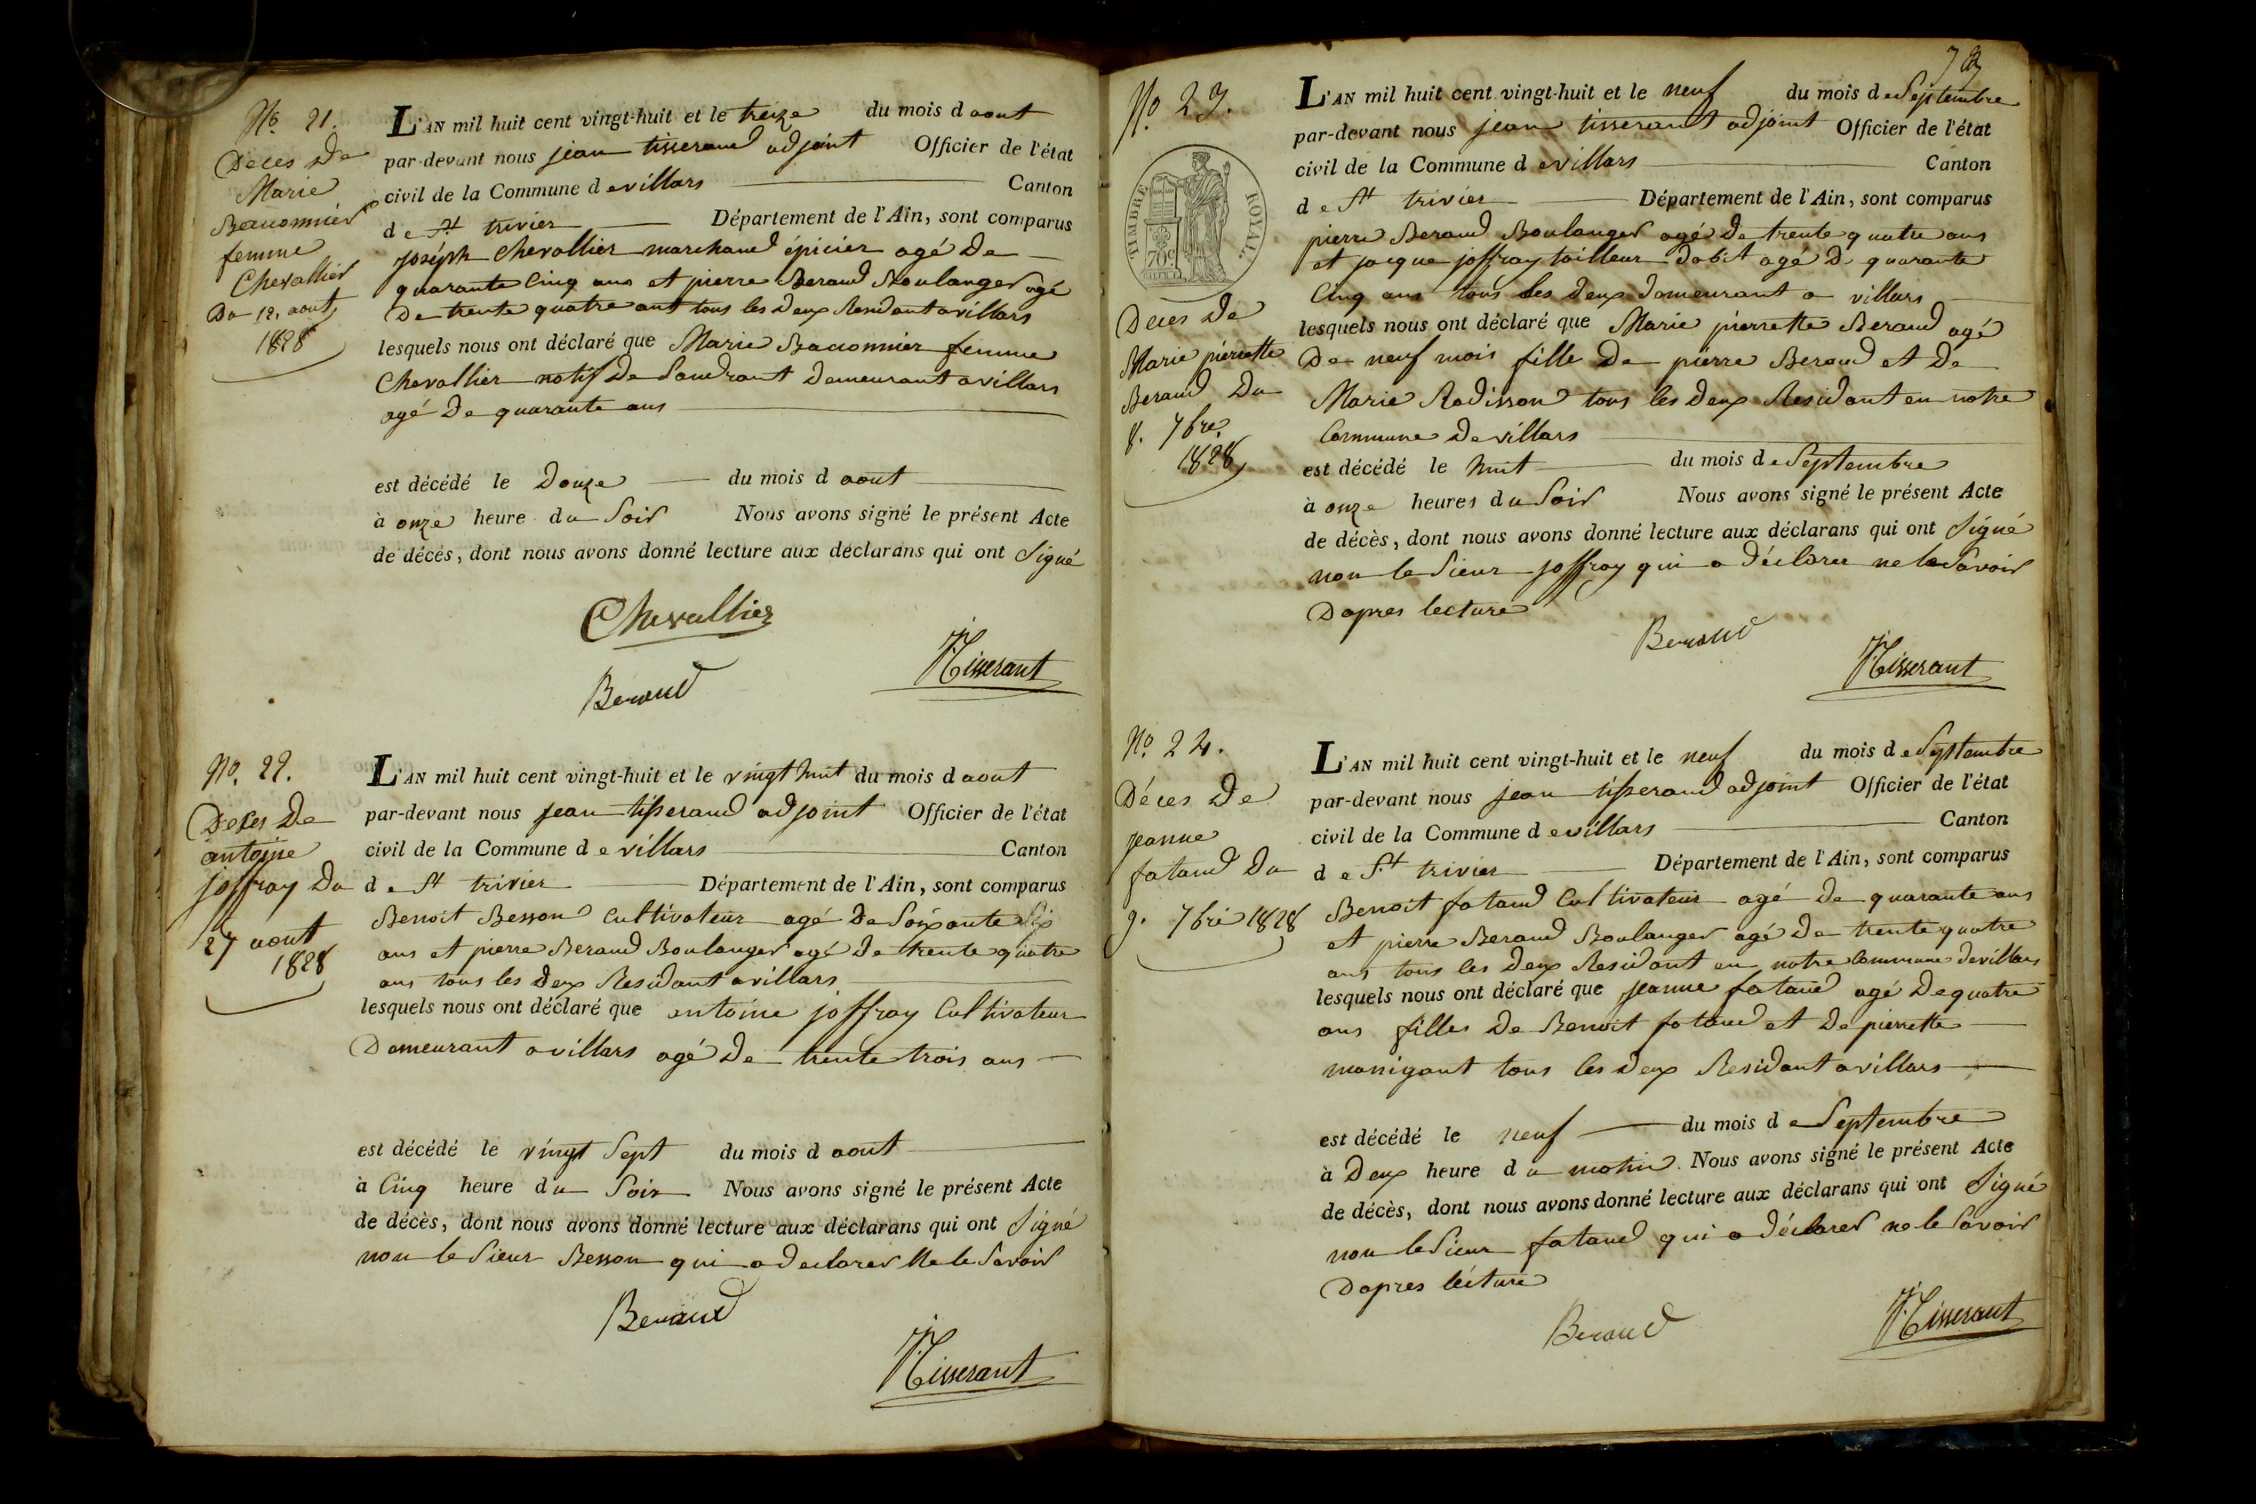 No. 21.
Deces De
Marie
Baconnier
femme
Chevallier
Du 12. aout
1828
L'AN mil huit cent vingt-huit et le treize du mois d aout
par-devant nous jean tisserand adjoint Officier de l'état
civil de la Commune d evillars Canton
d e St trivier Département de l'Ain, sont comparus
joséph Chevallier marchand épicier agé De
quarante Cinq ans et pierre Beraud Boulanger agé
De trente quatre ans tous les Deux Residant avillars
lesquels nous ont déclaré que Marie Baconnier femme
Chevallier natif De Sandrant Demeurant avillars
agé De quarante ans
est décédé le Douze du mois d aout
à onze heure du Soir Nous avons signé le présent Acte
de décès, dont nous avons donné lecture aux déclarans qui ont Signé
Chevallier
Beraud
J. Tisserant
No. 22.
Deces De
antoine
joffray Du
27 aout
1828
L'AN mil huit cent vingt-huit et le vingt huit du mois d aout
par-devant nous jean tisserand adjoint Officier de l'état
civil de la Commune d e villars Canton
d e St trivier Département de l'Ain, sont comparus
Benoit Besson Cultivateur agé De Soixante Six
ans et pierre Beraud Boulanger agé De trente quatre
ans tous les Deux Residant avillars
lesquels nous ont déclaré que antoine joffray Cultivateur
Demeurant avillars agé De trente trois ans
est décédé le vingt Sept du mois d aout
à Cinq heure du Soir Nous avons signé le présent Acte
de décès, dont nous avons donné lecture aux déclarans qui ont Signé
non le Sieur Besson qui a declarer Ne le Savoir
Beraud
J. Tisserant
73
No. 23.
TIMBRE ROYAL
70c
Deces De
Marie pierrette
Beraud Du
8. 7bre
1828
L'AN mil huit cent vingt-huit et le neuf du mois d eSeptembre
par-devant nous jean tisserant adjoint Officier de l'état
civil de la Commune d evillars Canton
d e St trivier Département de l'Ain, sont comparus
pierre Beraud Boulanger agé De trente quatre ans
et jacque joffray tailleur Dabit agé De quarante
Cinq ans tous les Deux Domeurant a villars
lesquels nous ont déclaré que Marie pierrette Beraud agé
De neuf mois fille De pierre Beraud et De
Marie Radisson tous les Deux Residant en notre
Commune De villars
est décédé le huit du mois d eSeptembre
à onze heures du Soir Nous avons signé le présent Acte
de décès, dont nous avons donné lecture aux déclarans qui ont Signé
non le Sieur joffray qui a Déclarer ne le Savoir
Dapres lecture
Beraud
J. Tisserant
No. 24.
Déces De
jeanne
fatand Du
9. 7bre 1828
L'AN mil huit cent vingt-huit et le neuf du mois d eSeptembre
par-devant nous jean tisserand adjoint Officier de l'état
civil de la Commune d evillars Canton
d e St trivier Département de l'Ain, sont comparus
Benoit fatand Cultivateur agé De quarante ans
et pierre Beraud Boulanger agé De trente quatre
ans tous les Deux Residant en notre Commune De villars
lesquels nous ont déclaré que jeanne fatand agé De quatre
ans filles De Benoit fatand et De pierrette
manigant tous les Deux Residant avillars
est décédé le neuf du mois d eSeptembre
à Deux heure du matin. Nous avons signé le présent Acte
de décès, dont nous avons donné lecture aux déclarans qui ont Signé
non le Sieur fatand qui a déclarer ne le Savoir
Dapres lécture
Beraud
J. Tisserant